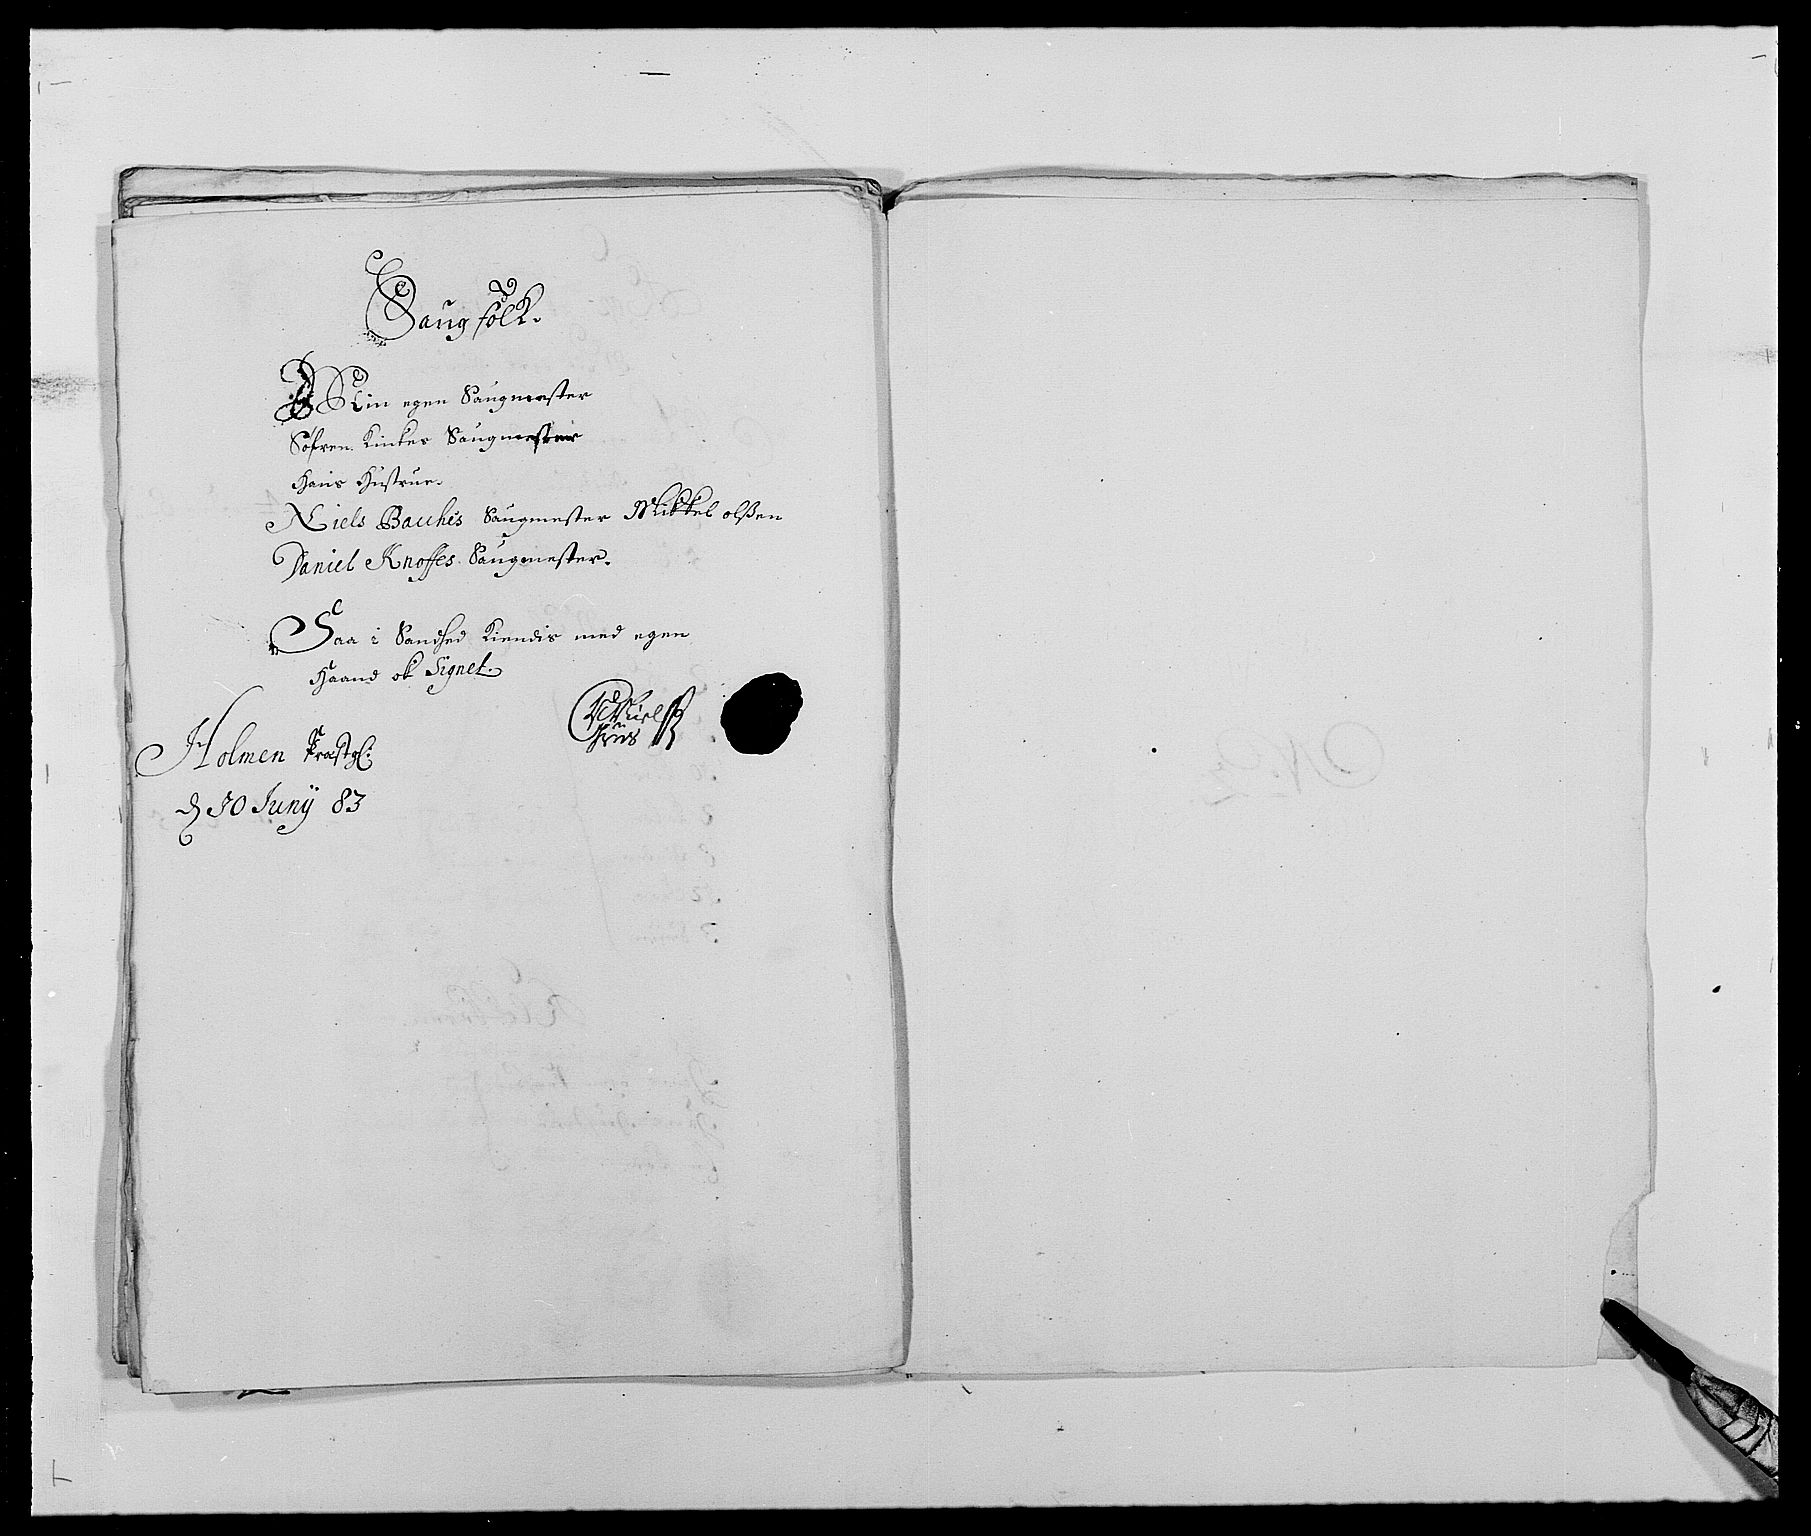 Saug folk.
Min egen Saugmester
Søfren Kinkes Saugmester
Hans Hustrue.
Niels Bacches Saugmester Mikkel olßen
Daniel Knoffes Saugmester.
Saa i Sandhed Kiendis med egen
Haand ok Signet.
Holmen Præstgl:
d 30 Junij 83